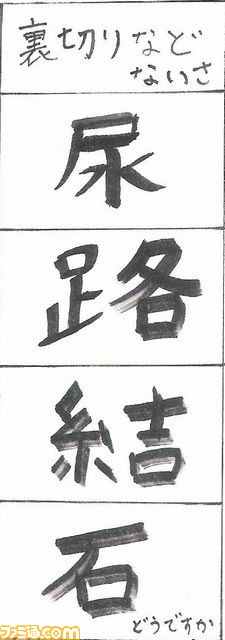 裏切りなど
ないさ
尿
路
結
石
どうですか
ファミ通.com